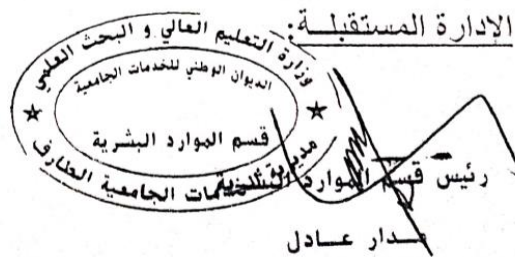 الإدارة المستقبلـــة:
وزارة التعليم العالي و البحث العلمي
الديوان الوطني للخدمات الجامعية
قسم الموارد البشرية
مديرية الخدمات الجامعية الطارف
رئيس قسم الموارد البشرية
مدار عــادل